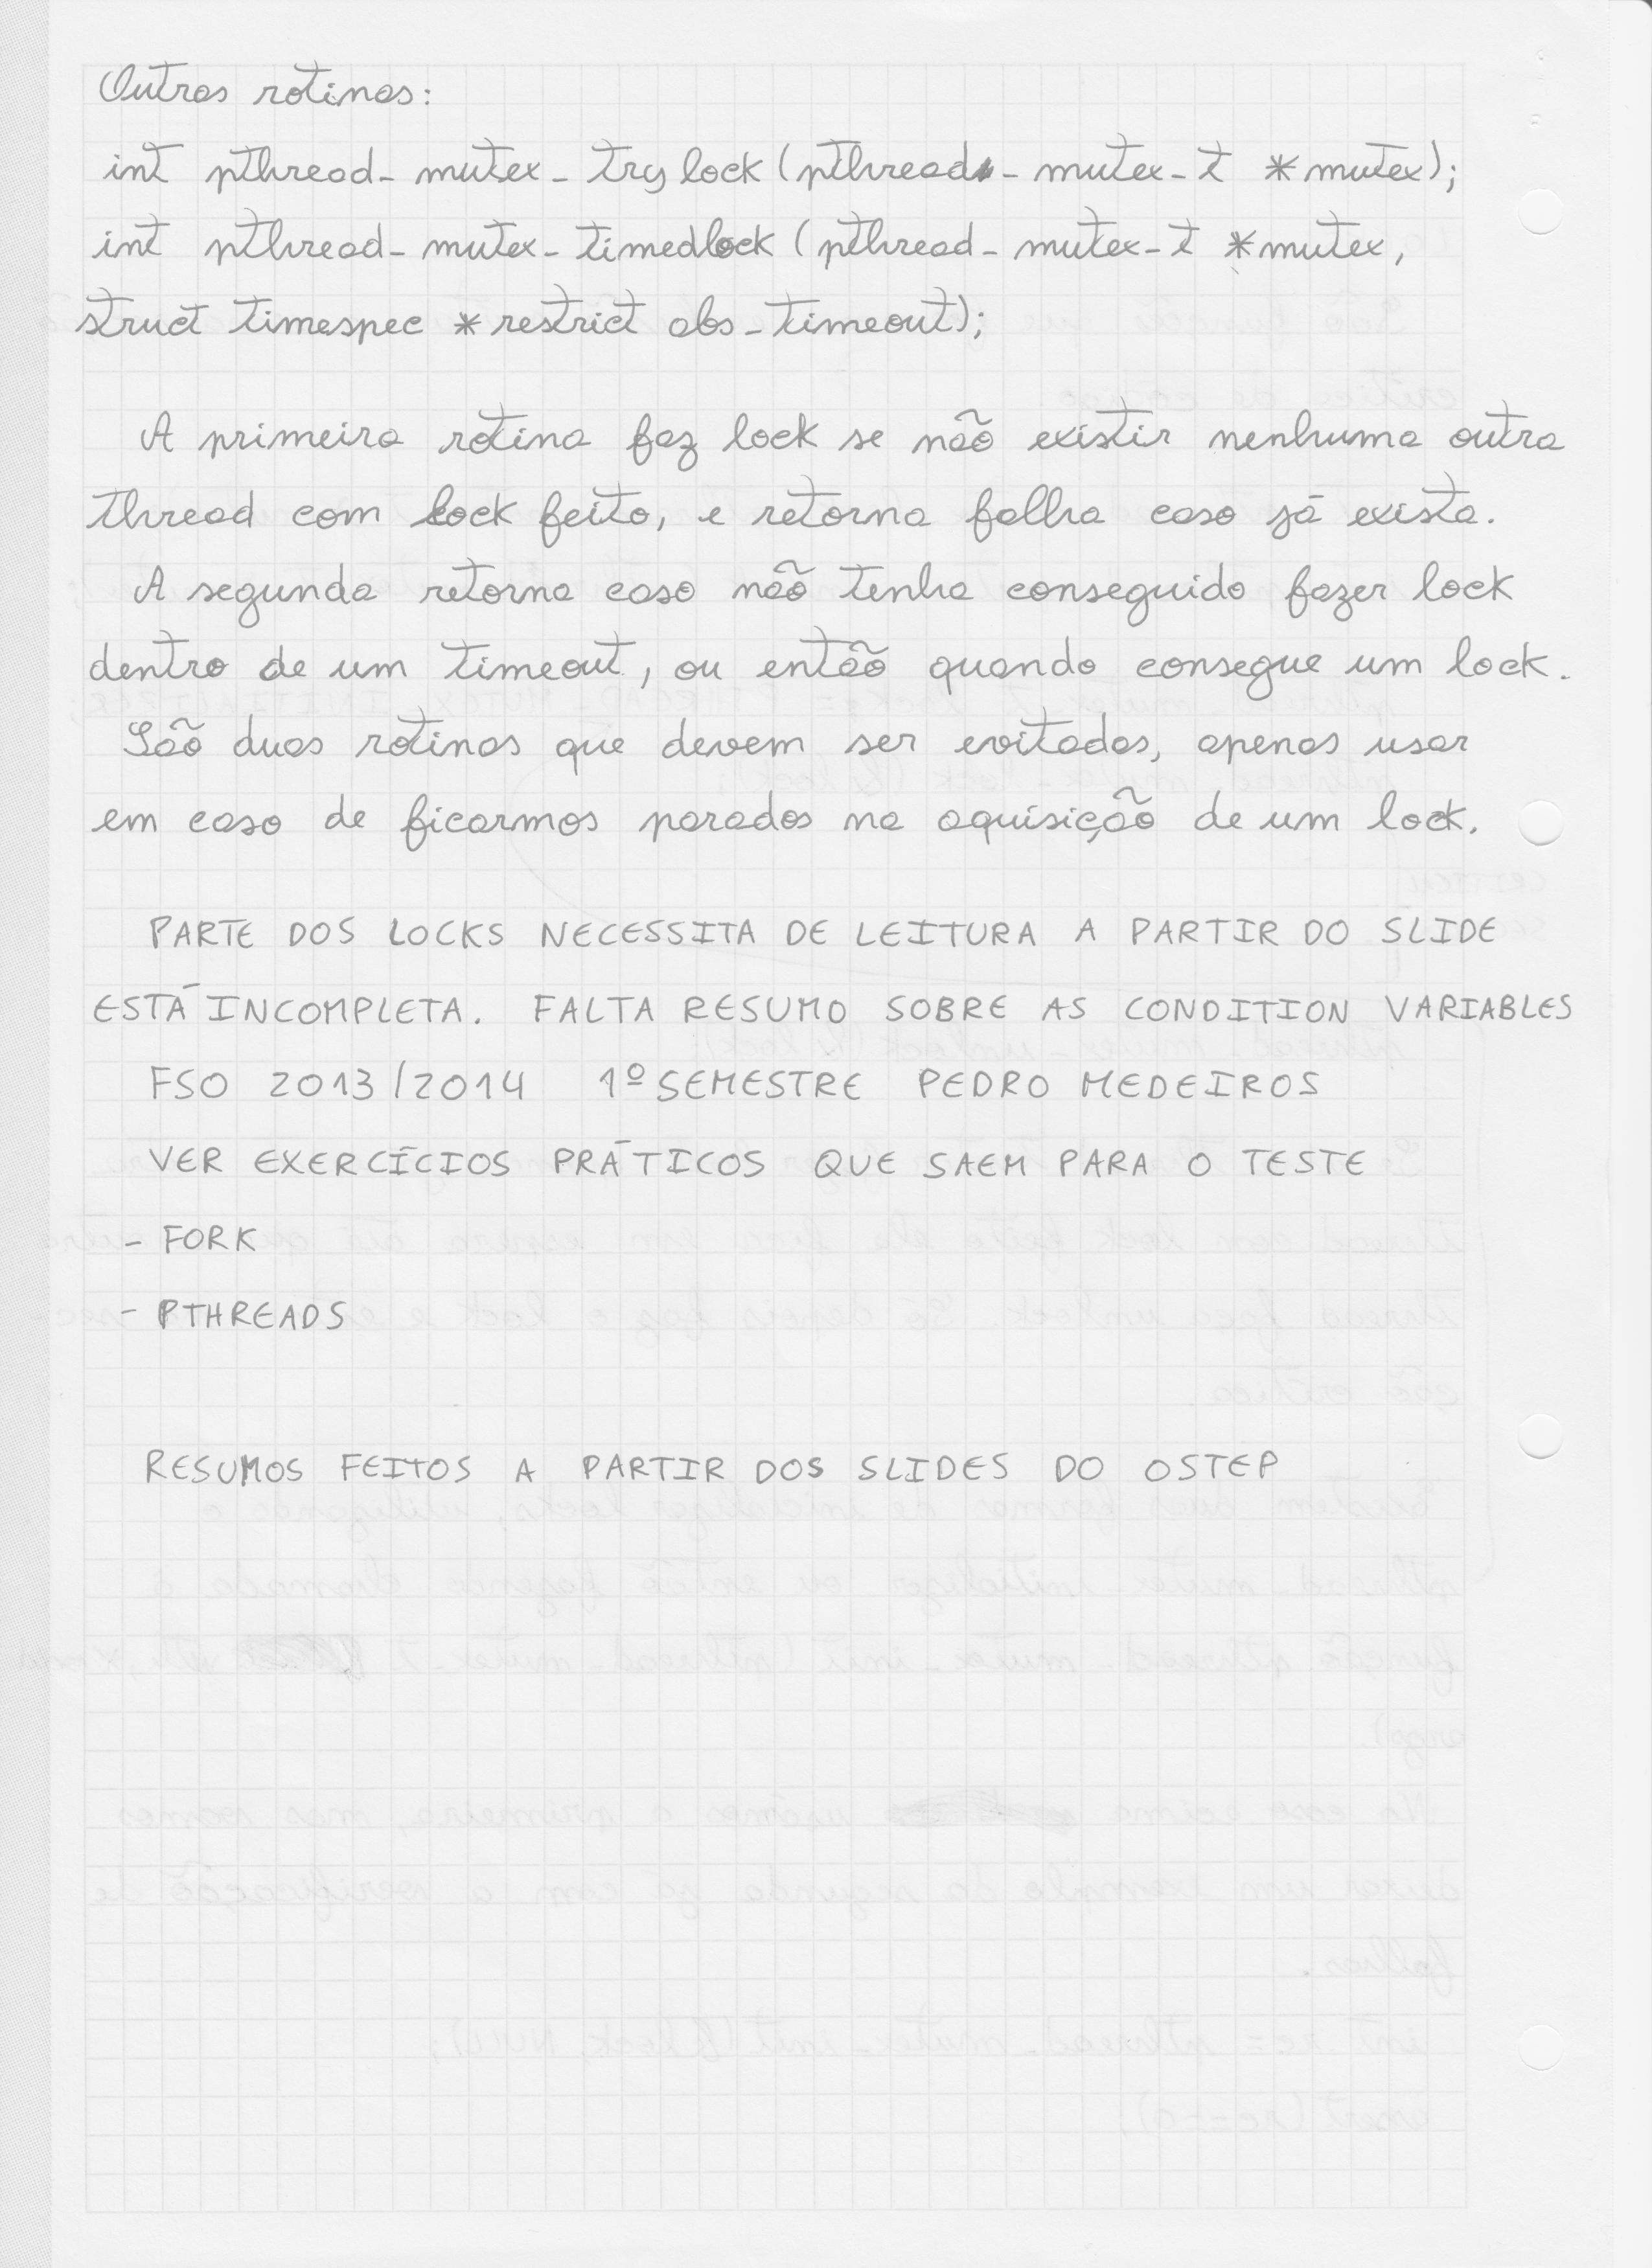 Outras rotinas:
int pthread_mutex_trylock(pthread_mutex_t *mutex);
int pthread_mutex_timedlock(pthread_mutex_t *mutex,
struct timespec *restrict abs_timeout);
A primeira rotina faz lock se não existir nenhuma outra
thread com lock feito, e retorna falha caso já exista.
A segunda retorna caso não tenha conseguido fazer lock
dentro de um timeout, ou então quando consegue um lock.
São duas rotinas que devem ser evitadas, apenas usar
em caso de ficarmos parados na aquisição de um lock.
PARTE DOS LOCKS NECESSITA DE LEITURA A PARTIR DO SLIDE
ESTÁ INCOMPLETA. FALTA RESUMO SOBRE AS CONDITION VARIABLES
FSO 2013/2014 1º SEMESTRE PEDRO MEDEIROS
VER EXERCÍCIOS PRÁTICOS QUE SAEM PARA O TESTE
- FORK
- PTHREADS
RESUMOS FEITOS A PARTIR DOS SLIDES DO OSTEP